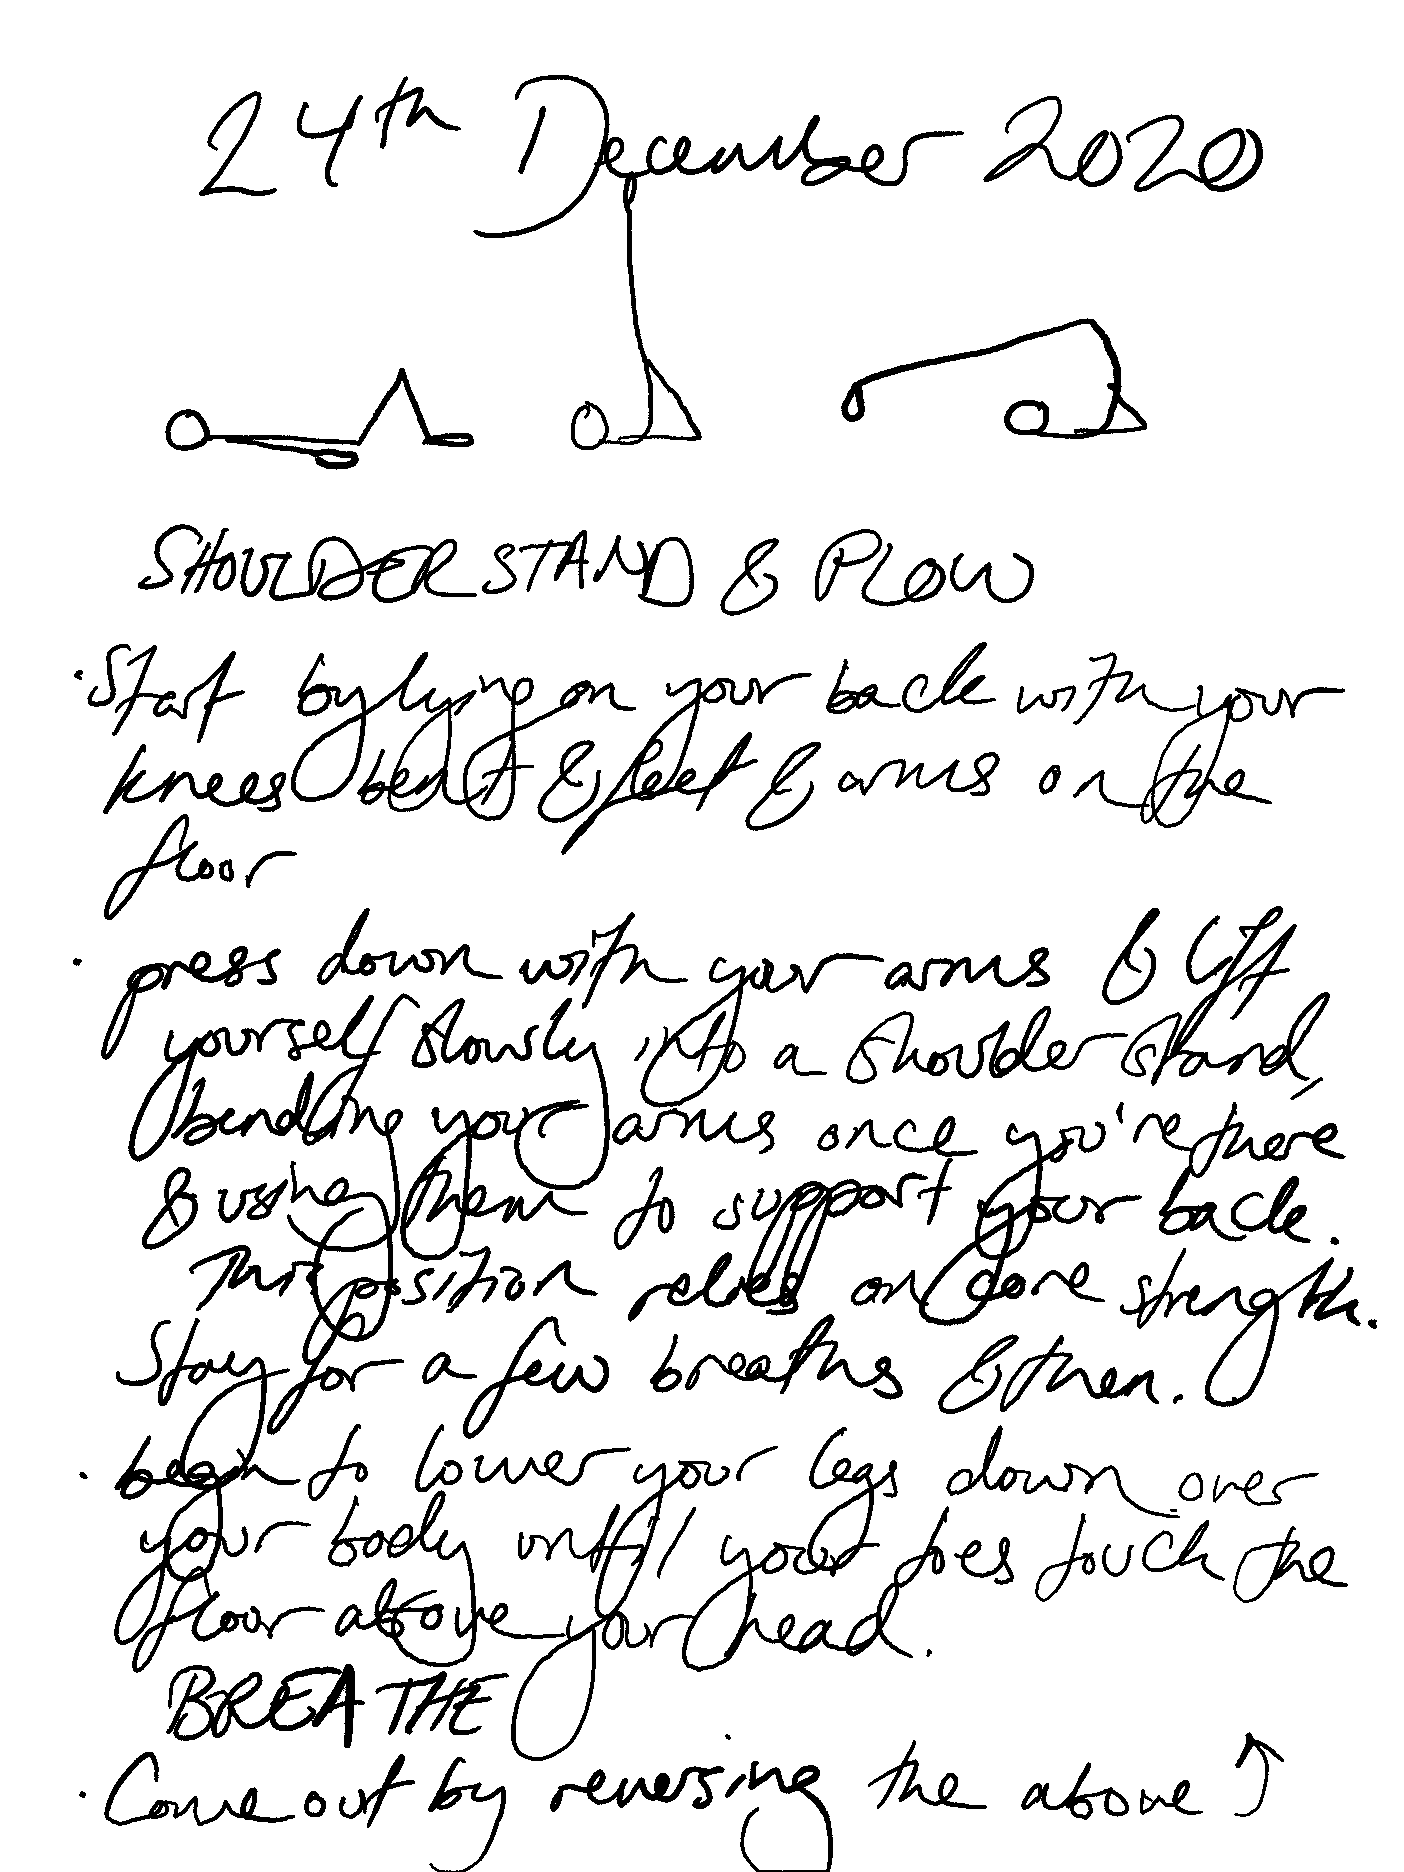 24th December 2020
SHOULDER STAND & PLOW
· Start by lying on your back with your
knees bent & feet & arms on the
floor
· press down with your arms & lift
yourself slowly into a shoulder stand,
bending your arms once you're there
& using them to support your back.
This position relies on core strength.
Stay for a few breaths & then.
· begin to lower your legs down over
your body until your toes touch the
floor above your head.
BREATHE
· Come out by reversing the above ↑